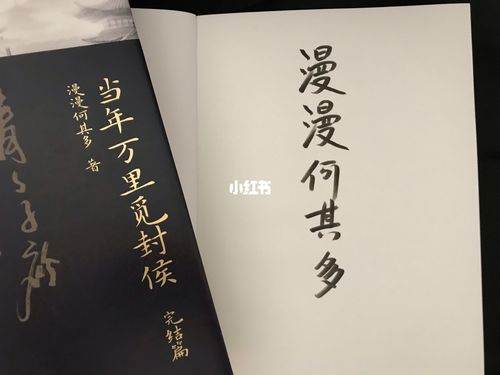 当年万里觅封侯
漫漫何其多 著
完结篇
漫漫何其多
小红书